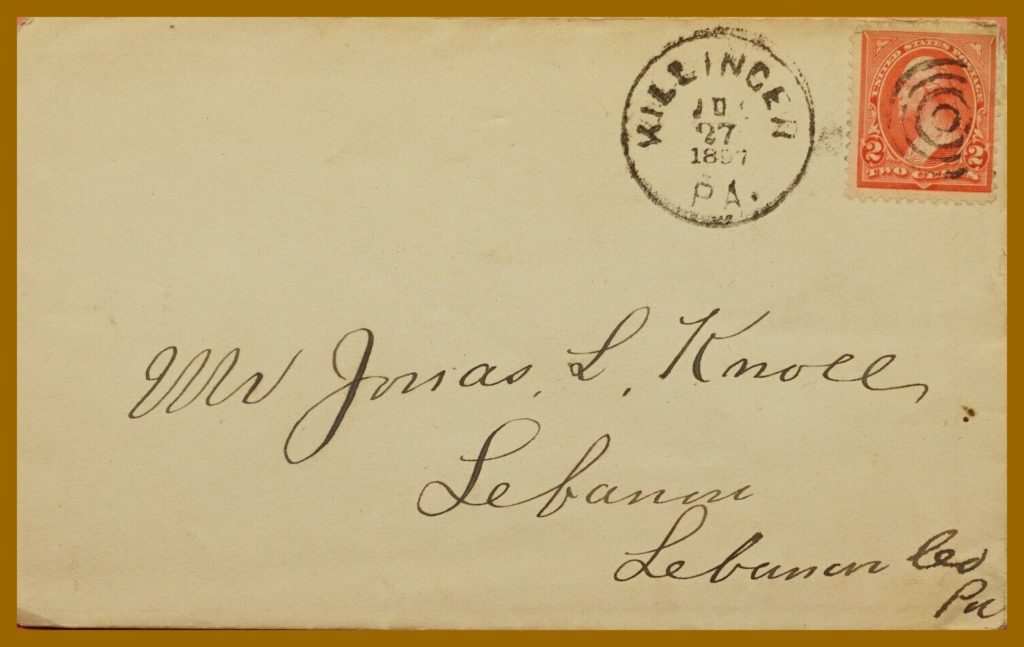 KILLINGER
27
1897
PA.
UNITED STATES POSTAGE
2 2
TWO CENTS
Mr Jonas. L. Knoll
Lebanon
Lebanon Co
Pa